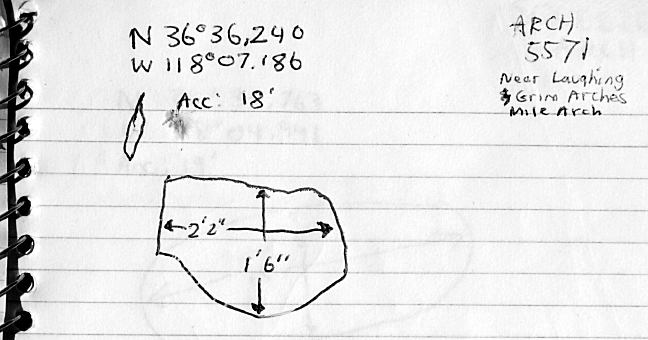 N 36°36,240
W 118°07.186
Acc: 18'
ARCH
5571
Near Laughing
& Grim Arches
Mile Arch
2'2"
1'6"